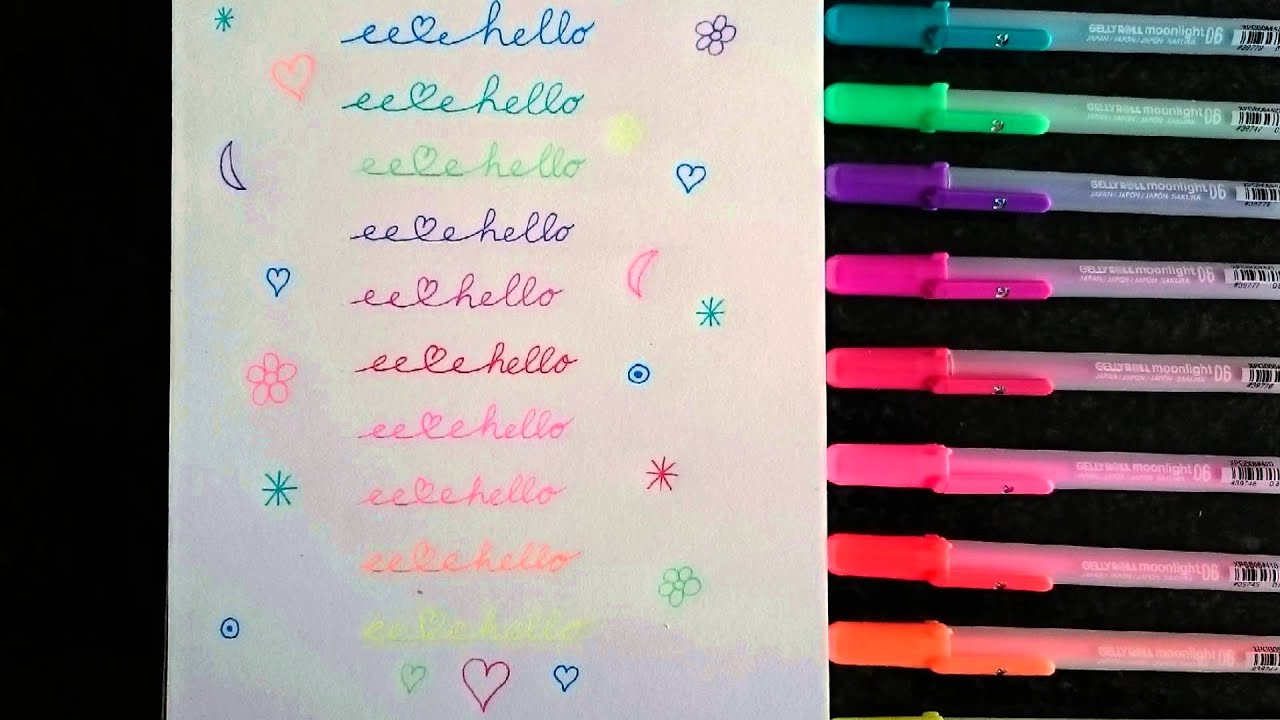 ee♡e hello
ee♡e hello
ee♡e hello
ee♡e hello
ee♡hello
ee♡e hello
ee♡e hello
ee♡e hello
ee♡e hello
ee♡e hello
GELLY ROLL moonlight 06
JAPAN/JAPON/JAPÓN SAKURA
GELLY ROLL moonlight 06
JAPAN/JAPON/JAPÓN SAKURA
GELLY ROLL moonlight 06
JAPAN/JAPON/JAPÓN SAKURA
GELLY ROLL moonlight 06
JAPAN/JAPON/JAPÓN SAKURA
#39777
GELLY ROLL moonlight 06
JAPAN/JAPON/JAPÓN SAKURA
GELLY ROLL moonlight 06
JAPAN/JAPON/JAPÓN SAKURA
GELLY ROLL moonlight 06
JAPAN/JAPON/JAPÓN SAKURA
GELLY ROLL moonlight 06
JAPAN/JAPON/JAPÓN SAKURA